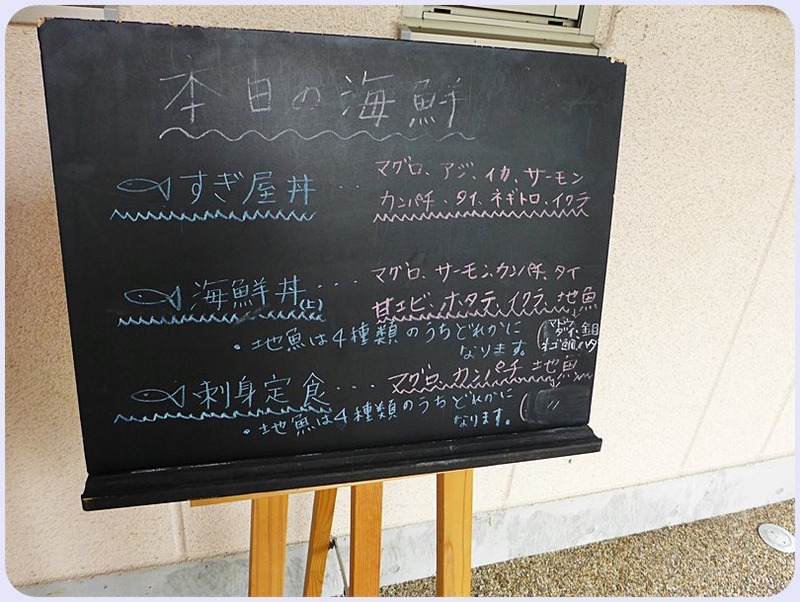 本日の海鮮
すぎ屋丼 ・・・ マグロ、アジ、イカ、サーモン
カンパチ、タイ、ネギトロ、イクラ
海鮮丼(上) ・・・ マグロ、サーモン、カンパチ、タイ
甘エビ、ホタテ、イクラ、地魚
・地魚は4種類のうちどれかに
なります。
刺身定食 ・・・ マグロ、カンパチ 地魚
・地魚は4種類のうちどれかに
なります。 ( 〃